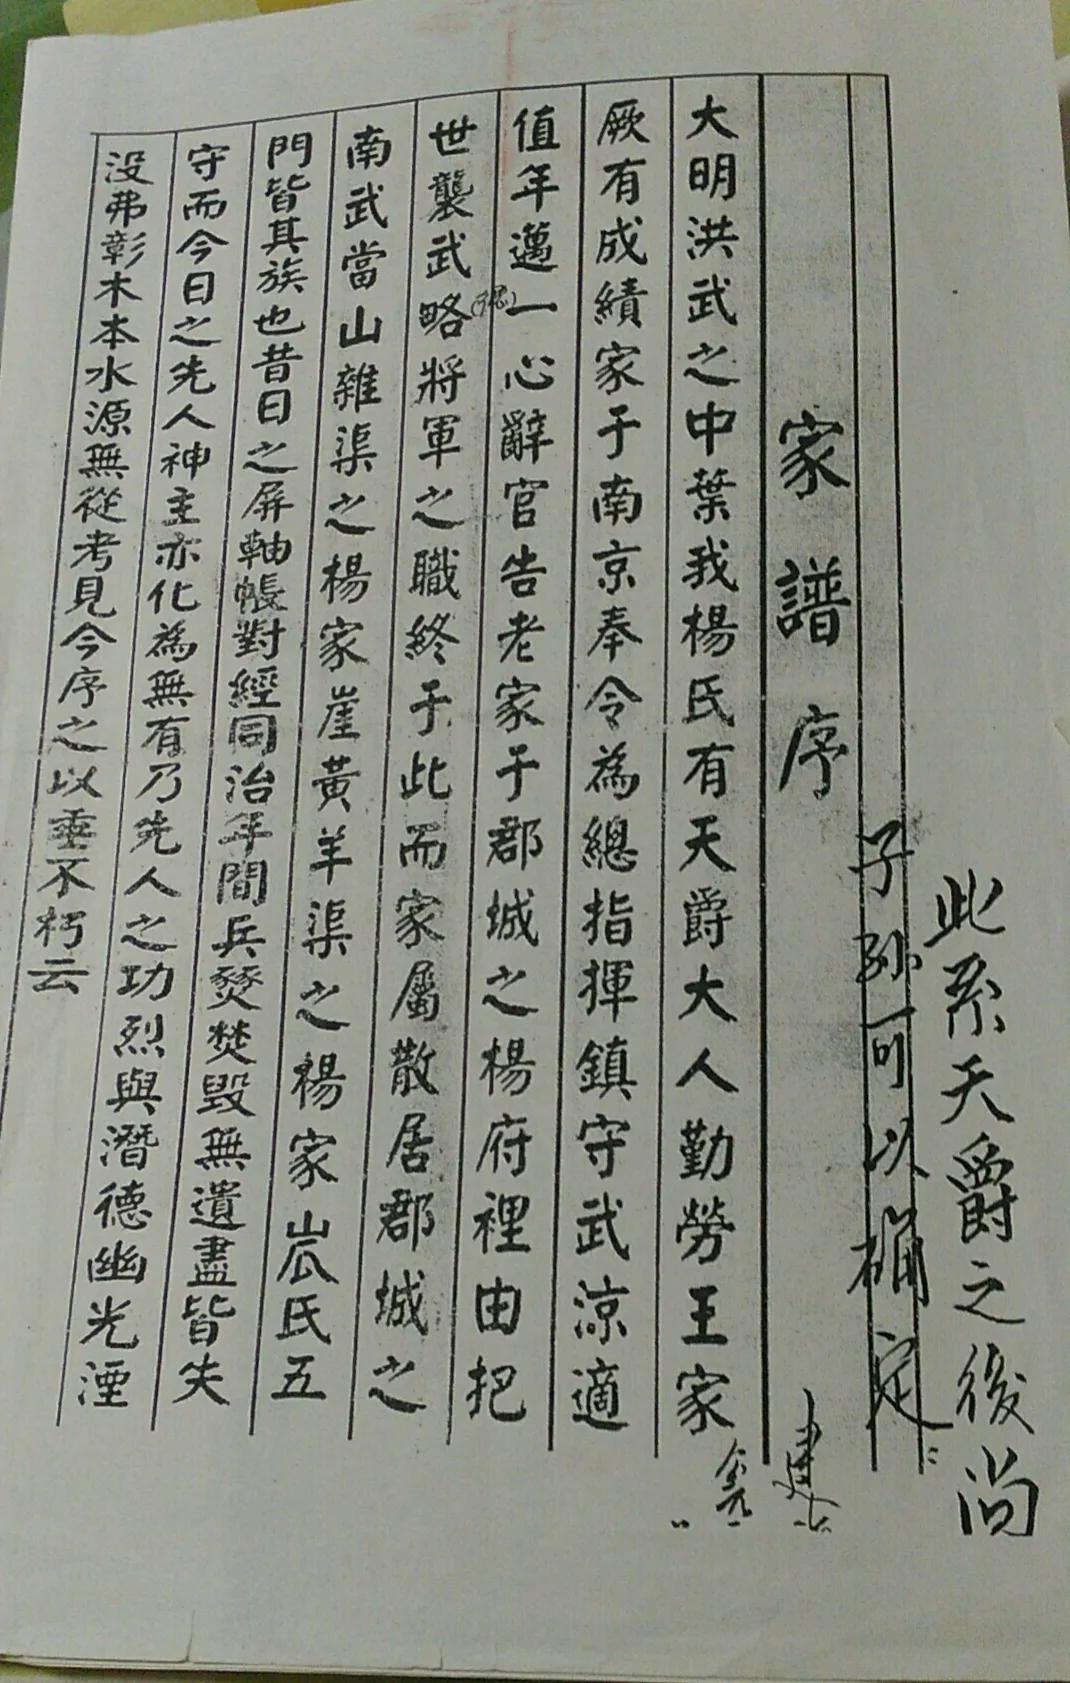 此系天爵之後尚
子孫可以桶定
家譜序
大明洪武之中葉我楊氏有天爵大人勤勞王家
厥有成績家于南京奉令為總指揮鎮守武涼適
值年邁一心辭官告老家于郡城之楊府裡由把
世襲武略將軍之職終于此而家屬散居郡城之
南武當山雜渠之楊家崖黃羊渠之楊家岽氏五
門皆其族也昔日之屏軸帳對經同治年間兵燹焚毀無遺盡皆失
守而今日之先人神主亦化為無有乃先人之功烈與潛德幽光湮
没弗彰木本水源無從考見今序之以垂不朽云